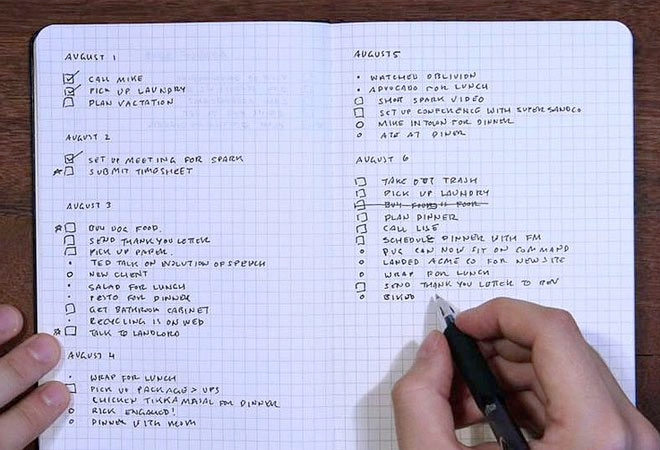 AUGUST 1
CALL MIKE
PICK UP LAUNDRY
PLAN VACTATION
AUGUST 2
SET UP MEETING FOR SPARK
SUBMIT TIMESHEET
AUGUST 3
BUY DOG FOOD.
SEND THANK YOU LETTER
PICK UP PAPER.
TED TALK ON EVOLUTION OF SPEECH
NEW CLIENT
SALAD FOR LUNCH
PESTO FOR DINNER
GET BATHROOM CABINET
RECYCLING IS ON WED
TALK TO LANDLORD
AUGUST 4
WRAP FOR LUNCH
PICK UP PACKAGE > UPS
CHICKEN TIKKA MASAL FOR DINNER
RICK ENGAGED!
DINNER WITH MOM
AUGUST 5
WATCHED OBLIVION
ADVOCADO FOR LUNCH
SHOOT SPARK VIDEO
SET UP CONFERENCE WITH SUPERSANDCO
MIKE IN TOWN FOR DINNER
ATE AT DINER
AUGUST 6
TAKE OUT TRASH
PICK UP LAUNDRY
BUY
PLAN DINNER
CALL LISE
SCHEDULE DINNER WITH FM
PUG CAN NOW SIT ON COMMAND
LANDED ACME CO FOR NEW SITE
WRAP FOR LUNCH
SEND THANK YOU LETTER TO BEN